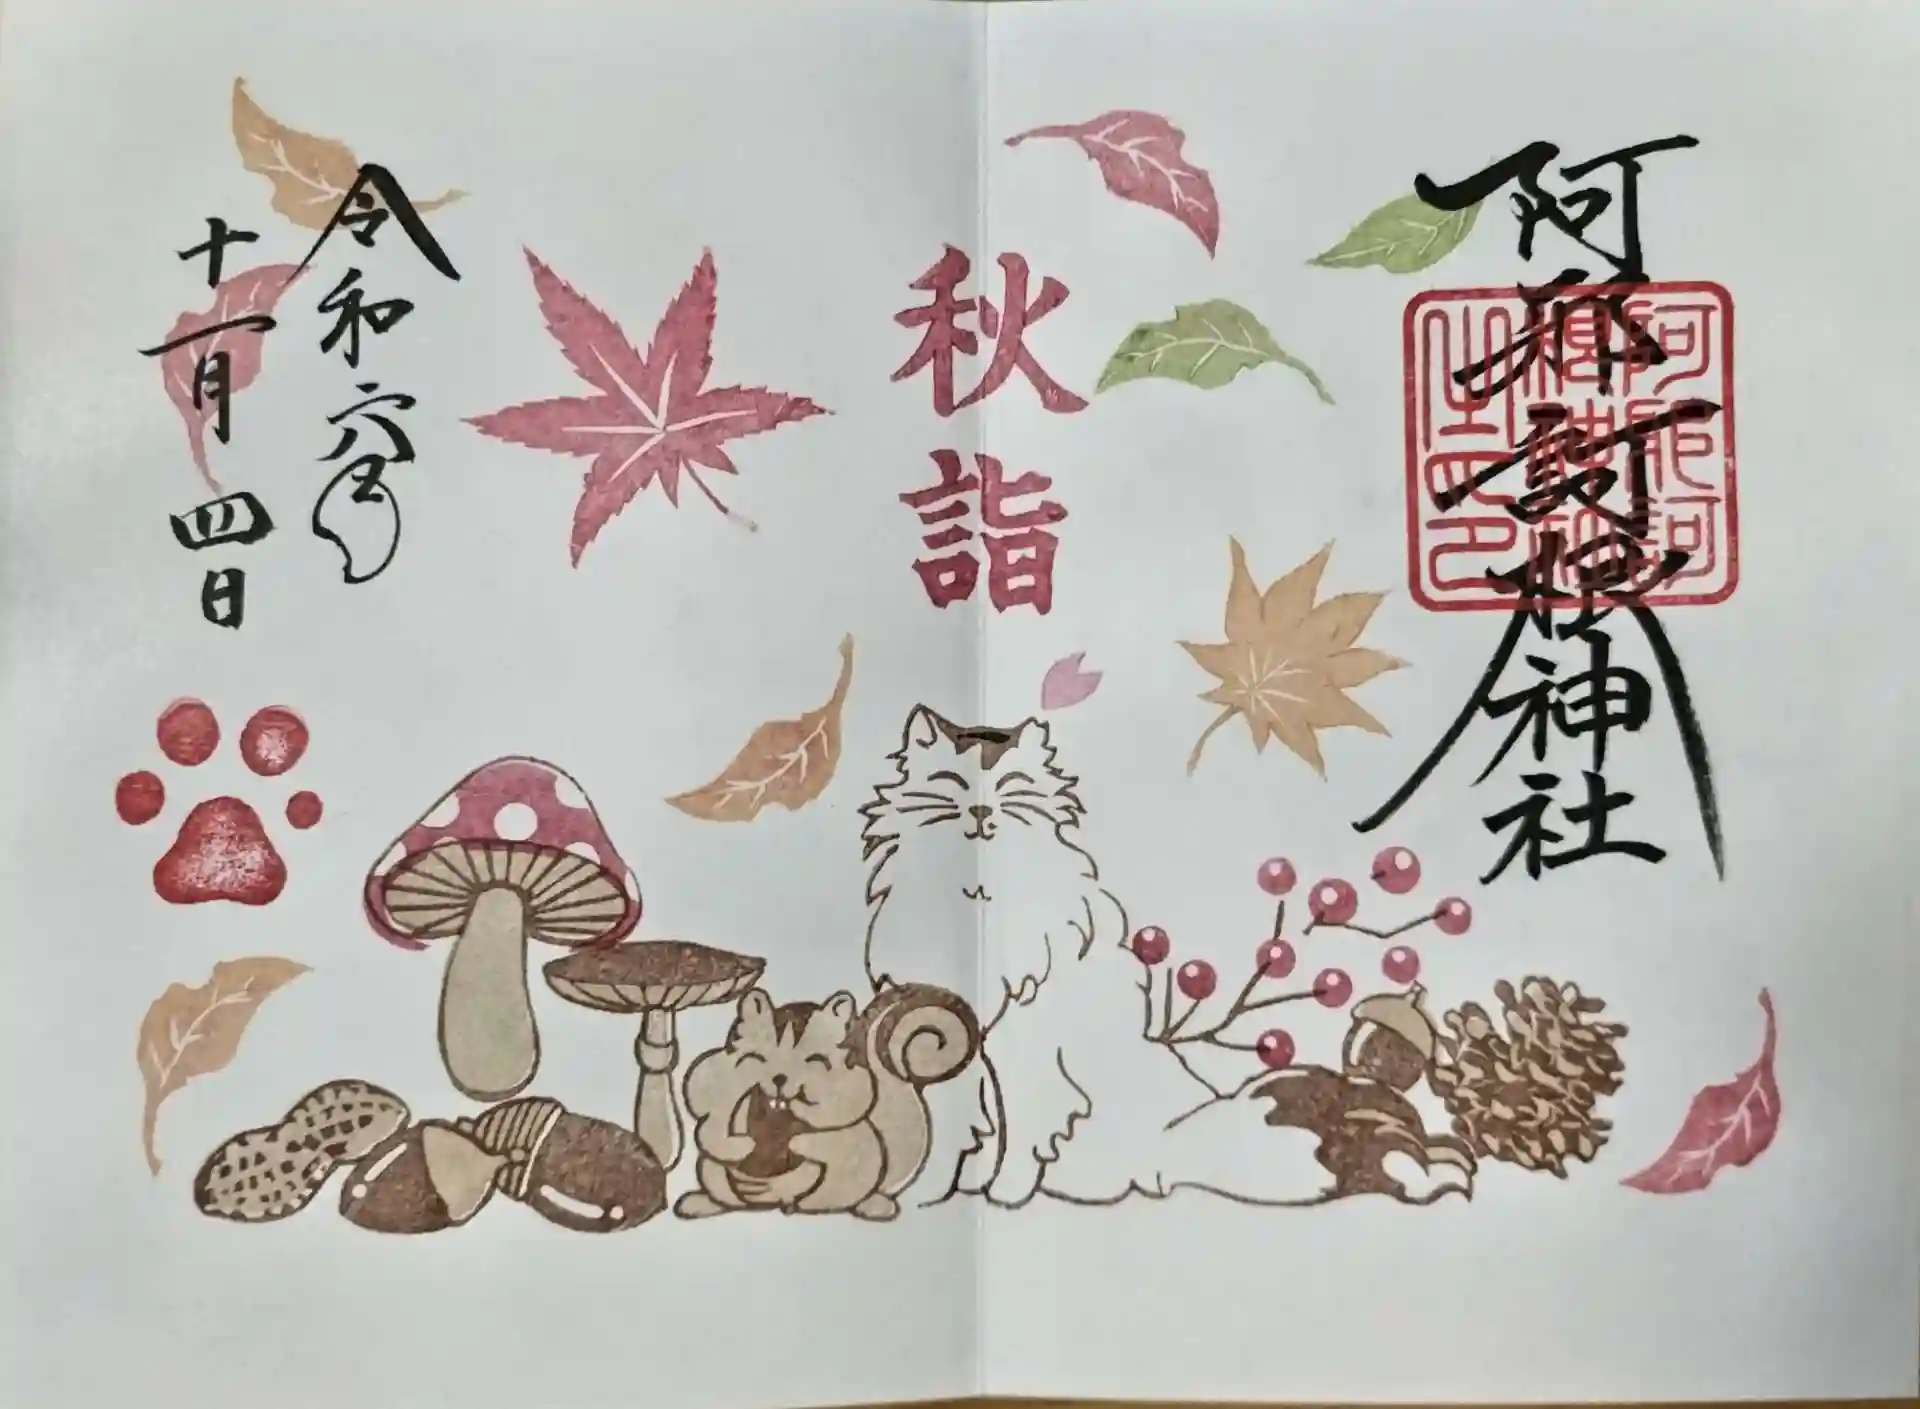 阿邪訶根神社
阿邪訶
根神社
之印
秋詣
令和六年
十一月四日